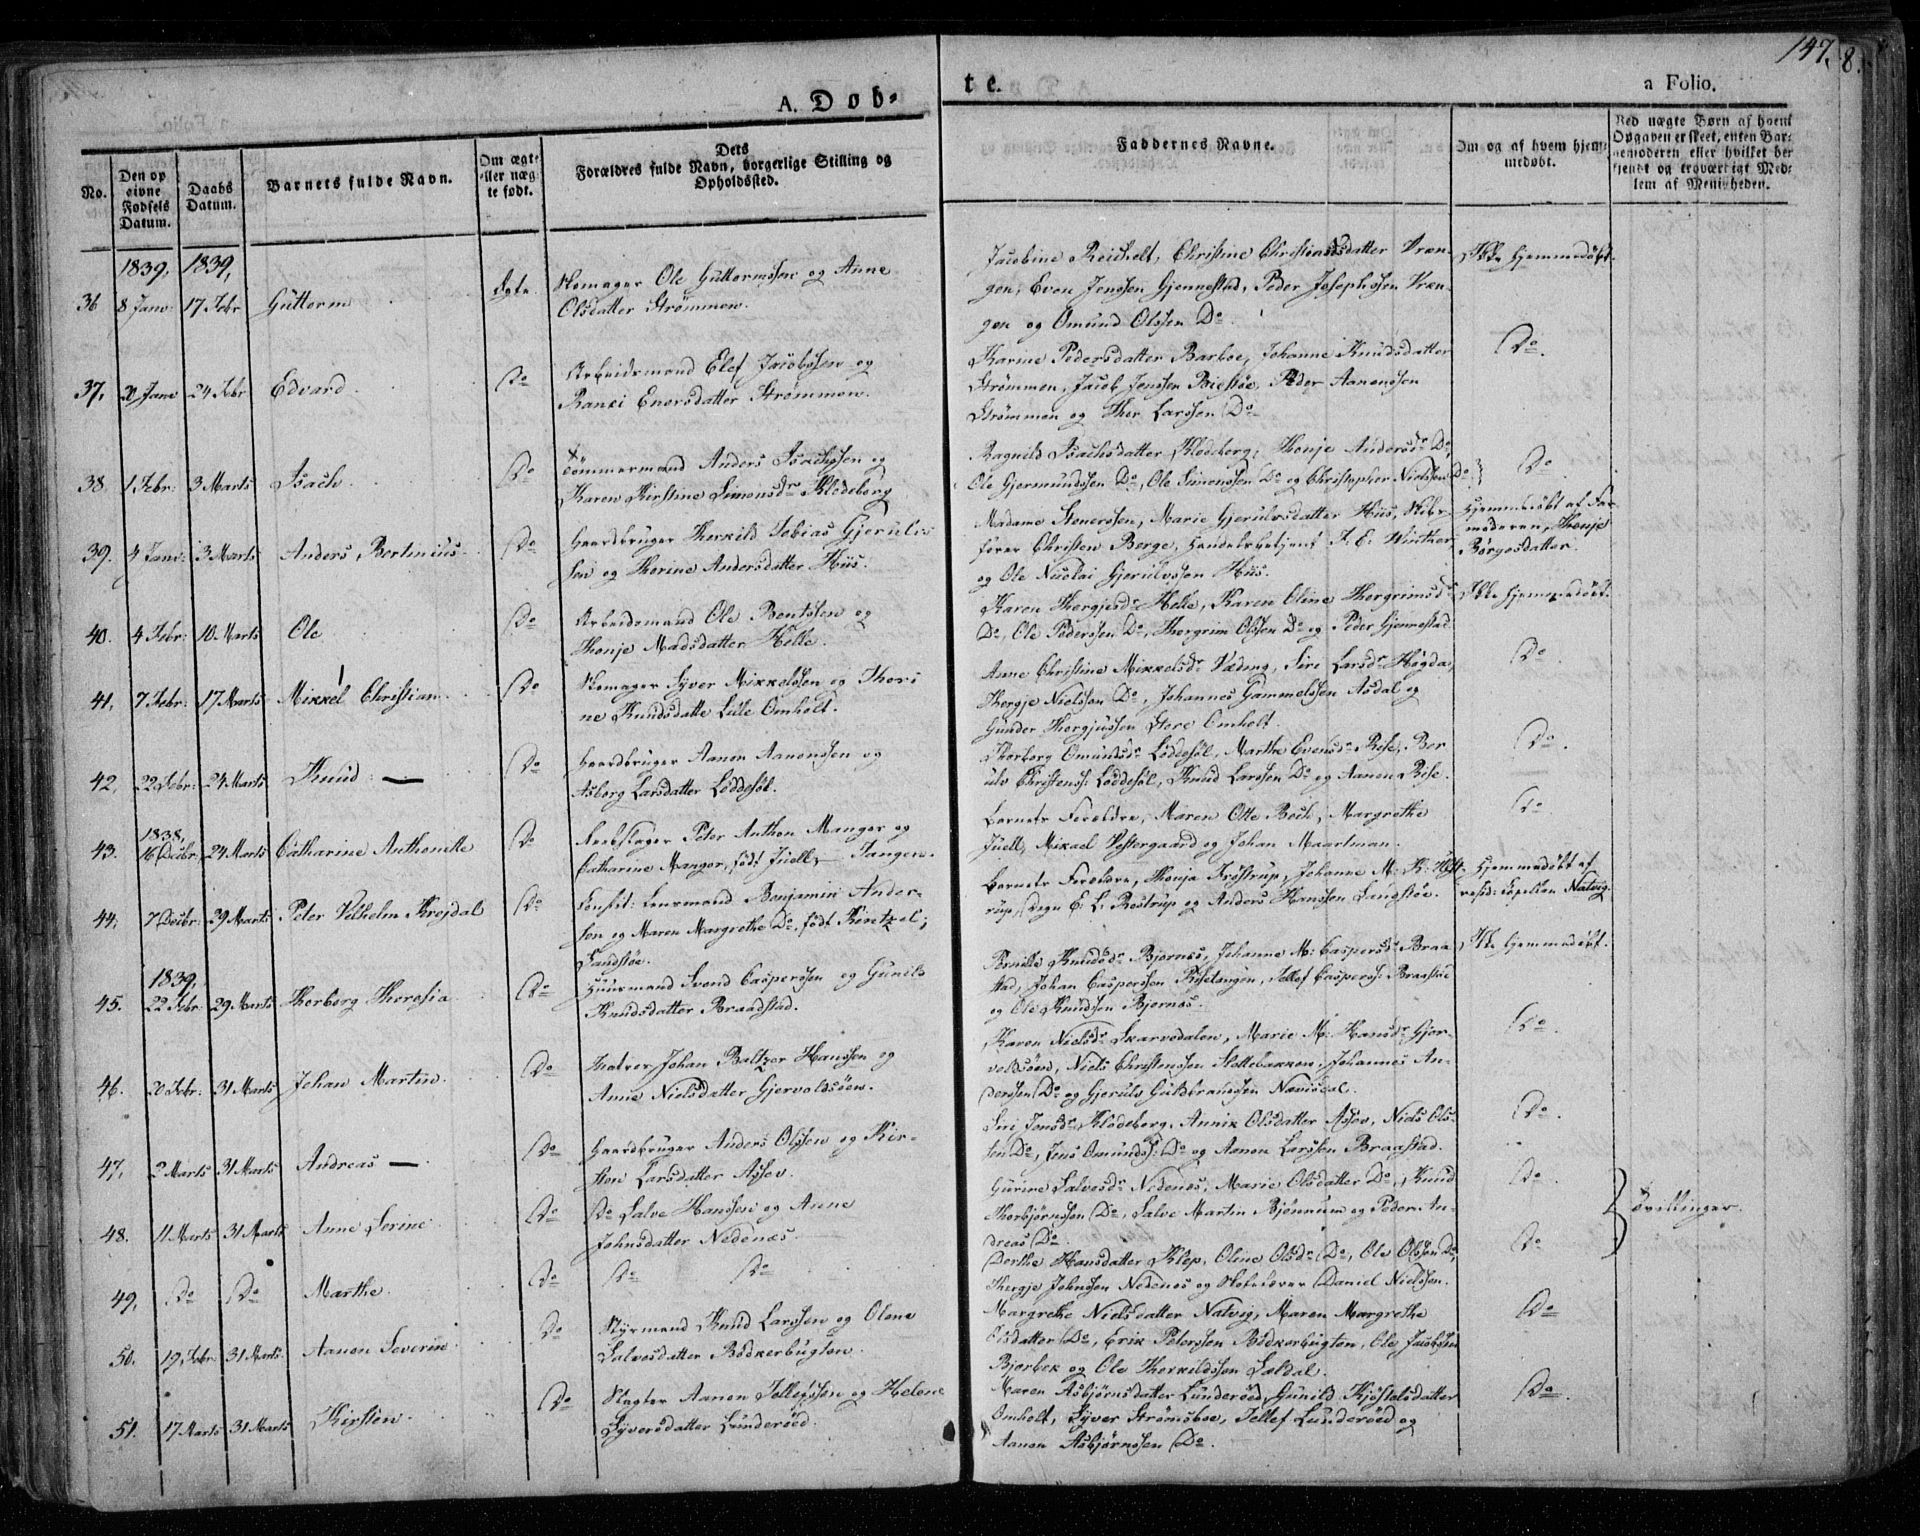 147. 8.
A. Dob-
te.
a Folio.
No.
Den op
givne
Fødsels
Datum.
Daabs
Datum.
Barnets fulde Navn.
Om ægte
eller uæg
te født.
Dets
Forældres fulde Navn, borgerlige Stilling og
Opholdssted.
Faddernes Navne.
Om og af hvem hjem-
medøbt.
Ved uægte Børn af hvem
Opgaven er skeet, enten Bar-
nemoderen eller hvilket her
kjendt og troværdigt Med-
lem af Menigheden.
1839, 1839,
36 8 Janv: 17 Febr Guttorm Ægte. Skomager Ole Guttormssen og Anne
Olsdatter Strømmen.
Jacobine Reichelt, Christine Christensdatter Vræn-
gen, Even Jenssen Gjennestad, Peder Josephssen Vræn-
gen og Omund Olssen Do.
Ikke hjemmedøbt.
37, 20 Janv 24 Febr Edvard Do Arbeidsmand Elef Jacobssen og
Ranei Enersdatter Strømmen.
Karine Pedersdatter Barboe, Johanne Knudsdatter
Strømmen, Jacob Jenssen Biestøe, Peder Aanonssen
Strømmen og Thor Larssen Do
Do.
38. 1 Febr: 3 Marts Isach Do Tømmermand Anders Isachssen og
Karen Kirstine Simonsdr Klodeborg
Ragnild Isachsdatter Klodeborg, Thonje Andersdr Do,
Ole Gjermundssen Do, Ole Simonssen Do og Christopher Nielssen Do
Do
39. 4 Janv: 3 Marts Anders, Bertinius Do Gaardbruger Therkild Tobias Gjerulvs
sen og Thorine Andersdatter Hiis.
Madame Stenerssen, Marie Gjerulvsdatter Hiis, Skibs-
fører Christen Berge, Handelsbetjent J. E. Winther,
og Ole Nicolai Gjerulvssen Hiis.
Hjemmedøbt af Far-
moderen, Thonje
Børgesdatter.
40. 4 Febr: 10 Marts Ole Do Arbeidsmand Ole Bentssen og
Thonje Madsdatter Helle.
Karen Thergjesdr Helle, Karen Oline Thorgrimsdr
Do, Ole Pederssen Do, Thorgrim Olssen Do og Peder Gjennestad
Ikke hjemmedøbt.
41, 7 Febr: 17 Marts Mikkel Christian Do Skomager Syver Mikkelssen og Thori
ne Knudsdatte Lille Omholt.
Anne Christine Mikkelsdr Væding, Siri Larsdr Høgda,
Thergje Nielssen Do, Johannes Gammelssen Asdal og
Gunder Thergjussen Store Omholt.
Do.
42, 22 Febr: 24 Marts Knud Do Gaardbruger Aanon Aanonssen og
Asborg Larsdatter Løddesøl.
Thorborg Omundsdr Løddesøl, Marthe Evensdr Rise, Ber
ulv Christenss: Løddesøl, Knud Larssen Do og Aanen Rise.
Do.
1838,
43. 16 Decbr, 24 Marts Catharine Anthonette Do Rebslager Peter Anthon Manger og
Catharine Manger, født Juell, Tangen.
Barnets Forældre, Maren Otte Bech, Margrethe
Juell, Mikael Vestergaard og Johan Maartman.
Do.
44, 7 Decbr: 29 Marts Peter Vilhelm Krejdal Do Const: Lensmand Benjamin Ander-
sen og Maren Margrethe Do, født Kintzel;
Sandstøe.
Barnets Forældre, Thonja Frøstrup, Johanne M. K.
rup, Degn E. L. Rostrup og Anders Hanssen Langstøe.
Hjemmedøbt af
resid: Capellan Natvig
1839,
45. 22 Febr: 29 Marts Thorborg Theresia Do Huusmand Svend Casperssen og Gunild
Knudsdatter Braadstad.
Pernille Knudsdr Bjornes, Johanne M: Caspersdr Braa
stad, Johan Casperssen Riselangen, Tellef Casperss: Braastad
og Ole Knudssen Bjornes.
Ikke hjemmedøbt.
46. 20 Febr: 31 Marts Johan Martin Do Matros Johan Baltzer Hanssen og
Anne Nielsdatter Gjervoldsøen.
Karen Nielsdr Skarvedalen, Marie M: Hansdr Gjer-
voldsøen, Niels Christenssen Slettebakken, Johannes An-
derssen Do og Gjerulv Guldbrandssen Næviisdal.
Do.
47, 2 Marts 31 Marts Andreas Do Gaardbruger Anders Olssen og Kir-
sten Larsdatter Assev.
Siri Jensdr Klodeborg, Anne Olsdatter Assev, Niels Ols-
sen Do, Jens Omundss: Do og Aanon Larssen Braastad.
Do.
48. 11 Marts 31 Marts Anne Serine Do Do Salve Hanssen og Anne
Johnsdatter Nedenæs.
Gurine Salvesdr Nedenes, Marie Olsdatter Do, Knud
Thorbjørnssen Do, Salve Martin Bjønnum og Peder An-
dreas Do.
Do
Tvillinger
49, Do Do Marthe. Do Do Do
Dorthe Hansdatter Klep, Oline Olsdr Do, Ole Olssen Do,
Thergje Johnssen Nedenes og Skoleholder Daniel Nielssen.
Do
50. 19 Febr 31 Marts. Aanon Severin Do Styrmand Knud Larssen og Olene
Salvesdatter Bødkerbugten.
Margrethe Nielsdatter Natvig, Maren Margrethe
Olsdatter Do, Erik Peterssen Bødkerbugten, Ole Jacobssen
Bjorbek og Ole Therkildssen Saldal.
Do
51. 17 Marts 31 Marts Kirsten. Do Slagter Aanon Tellefssen og Helene
Syversdatter Lunderød.
Maren Asbjørnsdatter Lunderød, Gunild Kjøstelsdatter
Omholt, Syver Strømsboe, Tellef Lunderød og
Aanon Asbjørnssen Do.
Do.